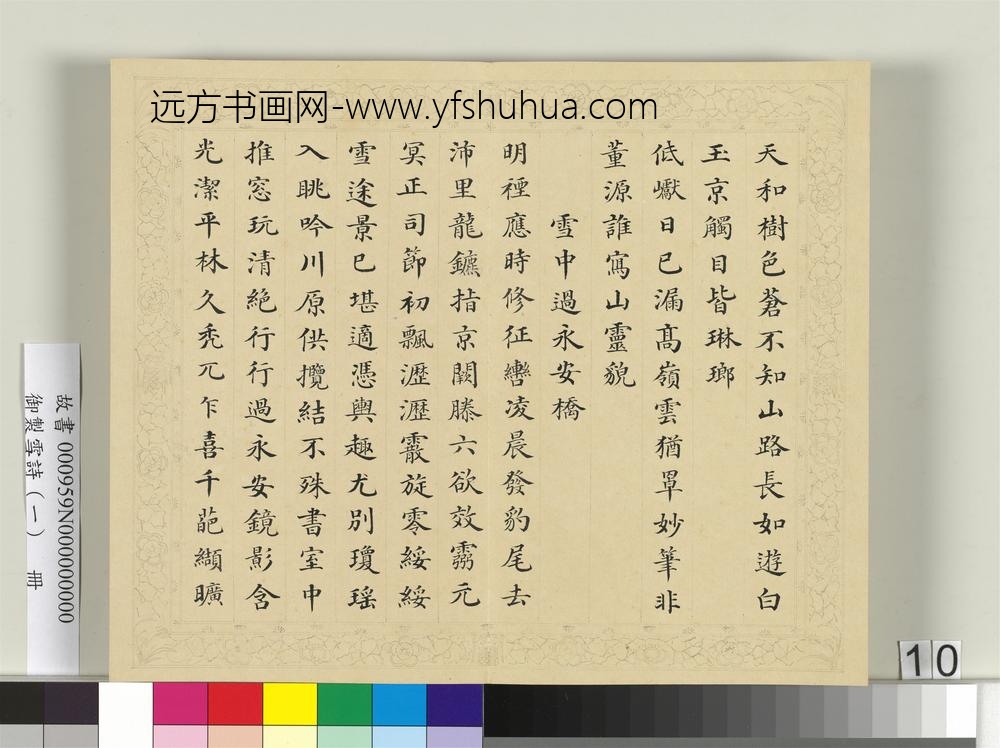 远方书画网-www.yfshuhua.com
天和樹色蒼不知山路長如遊白
玉京觸目皆琳瑯
低巘日已漏髙嶺雲猶罩妙筆非
董源誰寫山靈貌
雪中過永安橋
明禋應時修征轡凌晨發豹尾去
沛里龍鑣指京闕滕六欲效靈元
冥正司節初飄瀝瀝霰旋零綏綏
雪途景已堪適憑輿趣尤別瓊瑶
入眺吟川原供攬結不殊書室中
推窓玩清絶行行過永安鏡影含
光潔平林久秃兀乍喜千葩纈曠
故書 000959N000000000
御製雪詩(一) 冊
10